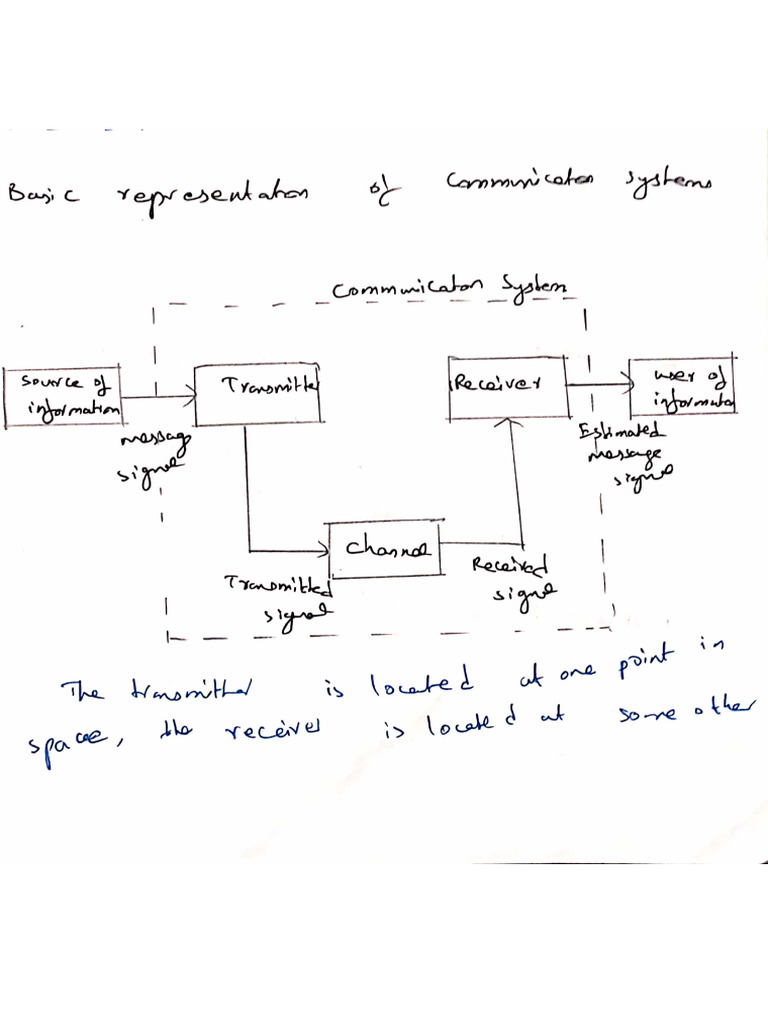 Basic representation of Communication systems
Communication System
Source of
information
Transmitter
Receiver
user of
information
message
signal
Estimated
message
signal
Channel
Transmitted
signal
Received
signal
The transmitter is located at one point in
space, the receiver is located at some other